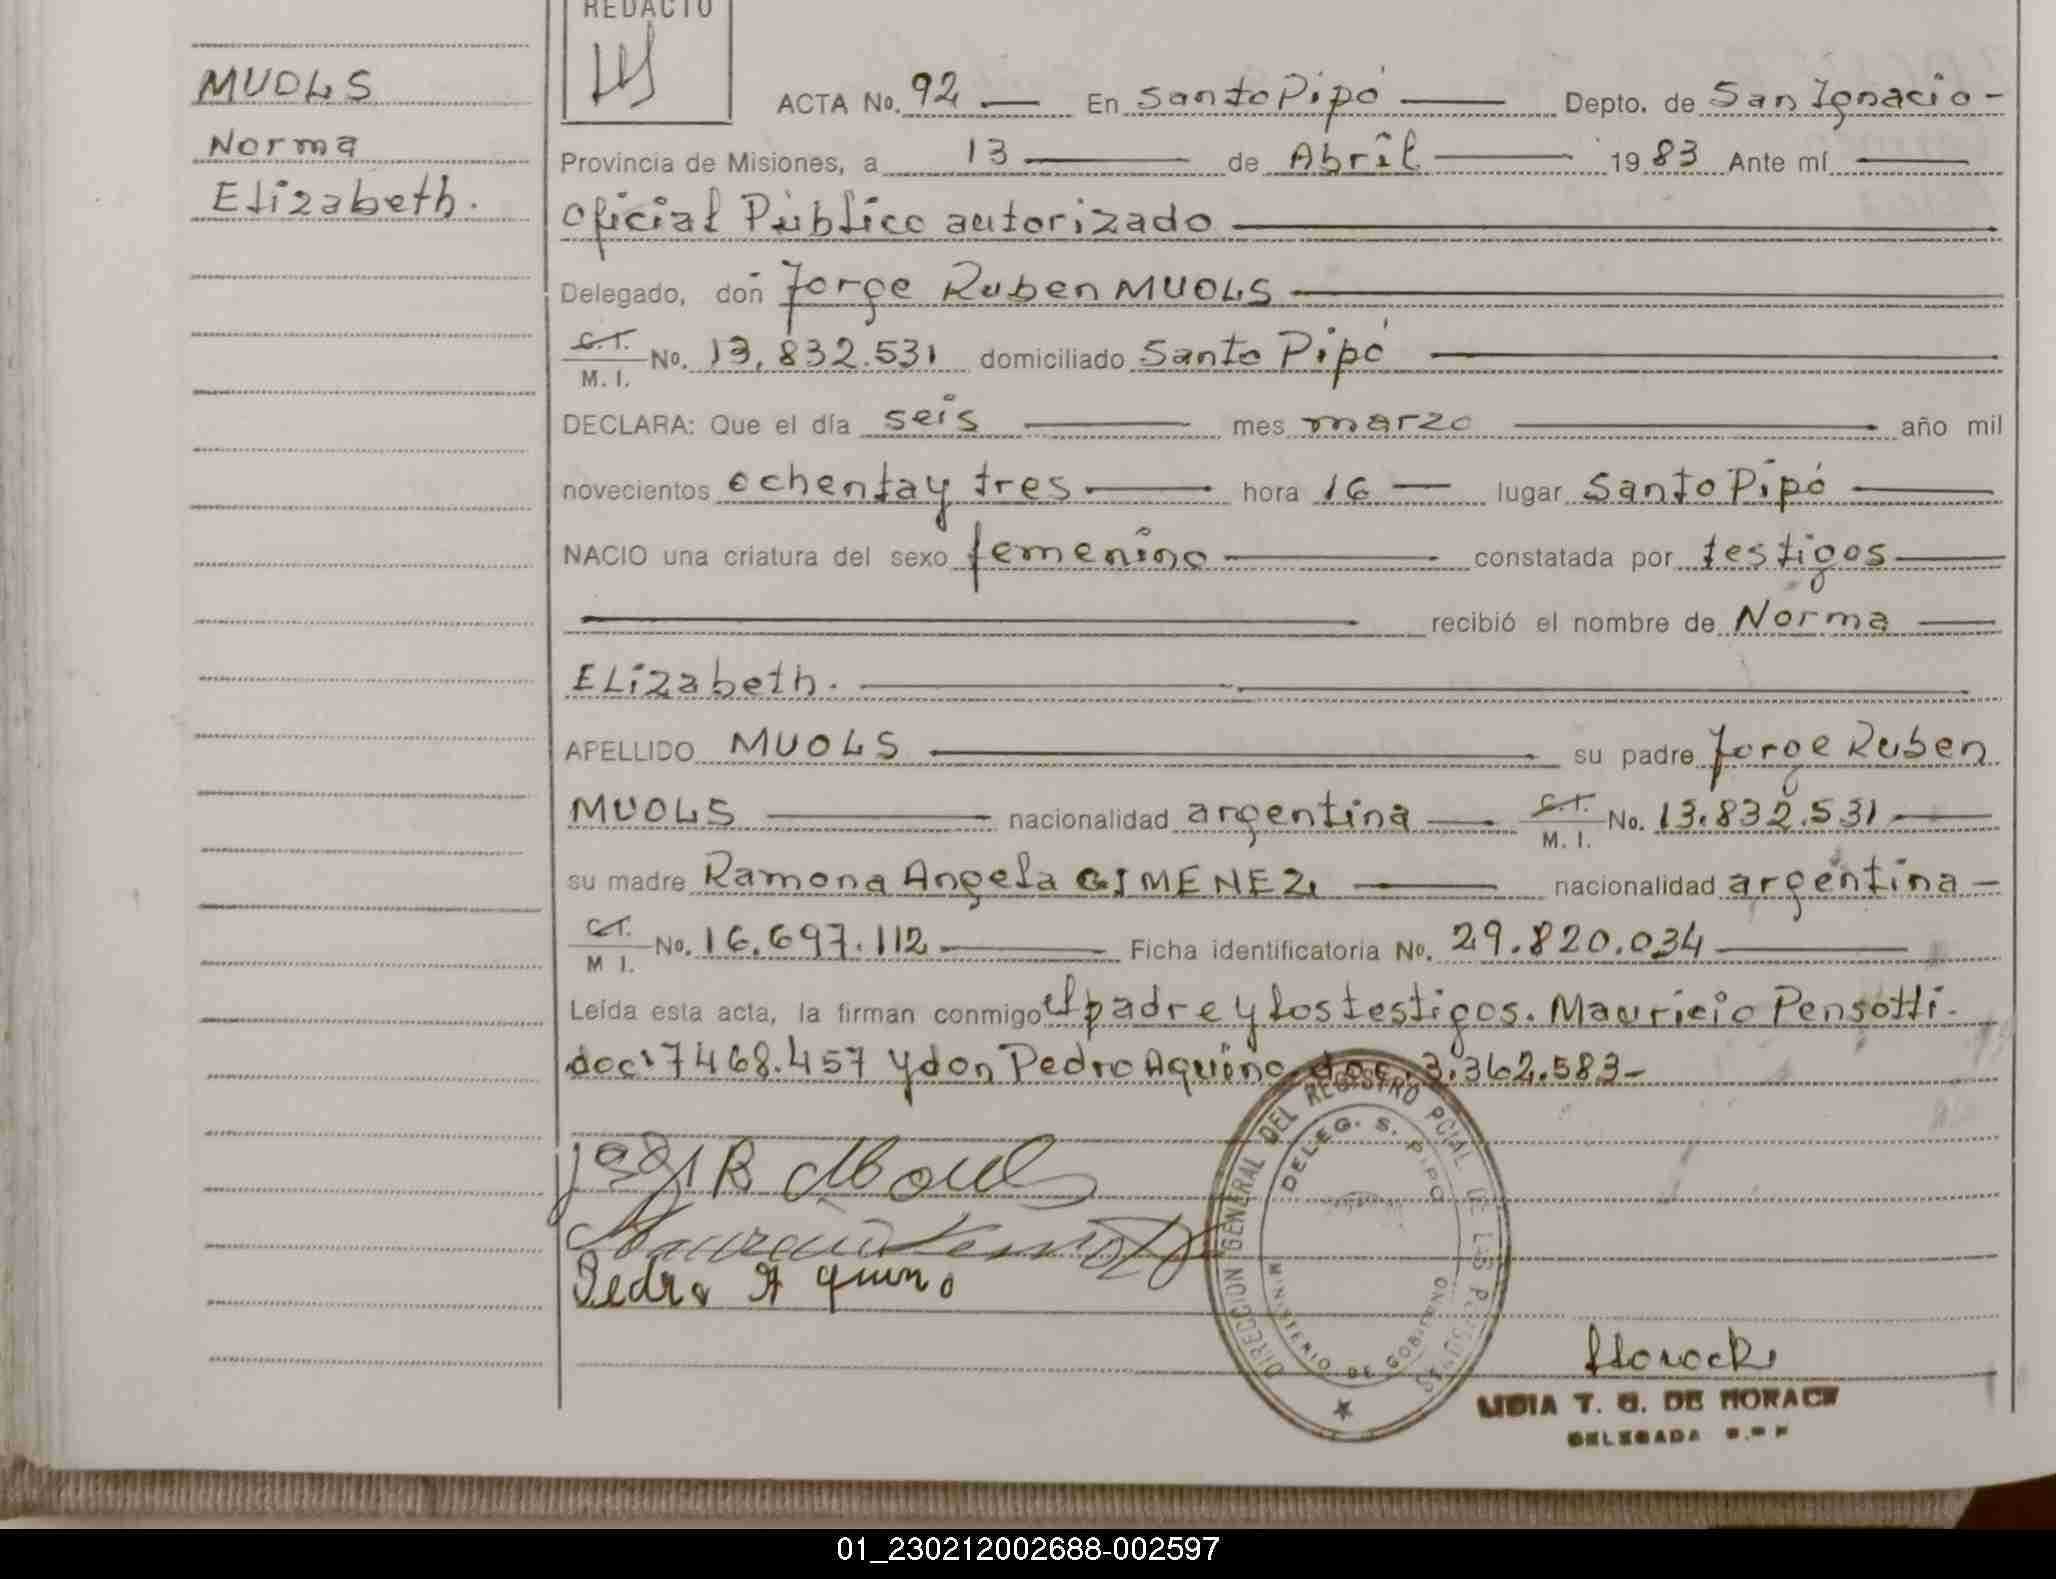 REDACTO
MUOLS
Norma
Elizabeth.
ACTA No. 92 — En Santo Pipó — Depto. de San Ignacio -
Provincia de Misiones, a 13 — de Abril — 1983 Ante mí —
Oficial Público autorizado —
Delegado, don Jorge Ruben MUOLS —
C.I. / M. I. No. 13.832.531 domiciliado Santo Pipó —
DECLARA: Que el día seis — mes marzo — año mil
novecientos ochenta y tres — hora 16 — lugar Santo Pipó —
NACIO una criatura del sexo femenino — constatada por testigos —
— recibió el nombre de Norma —
Elizabeth. —
APELLIDO MUOLS — su padre Jorge Ruben
MUOLS — nacionalidad argentina — C.I. / M. I. No. 13.832.531 —
su madre Ramona Angela GIMENEZ — nacionalidad argentina —
C.I. / M I. No. 16.697.112 — Ficha identificatoria No. 29.820.034 —
Leída esta acta, la firman conmigo el padre y los testigos. Mauricio Pensotti.
doc: 7468.457 y don Pedro Aquino doc. 3.362.583-
DIRECCION GENERAL DEL REGISTRO PCIAL DE LAS PERSONAS
DELEG. S. PIPO
MINISTERIO DE GOBIERNO
Pedro Aquino
LIDIA T. G. DE HORACK
DELEGADA
01_230212002688-002597